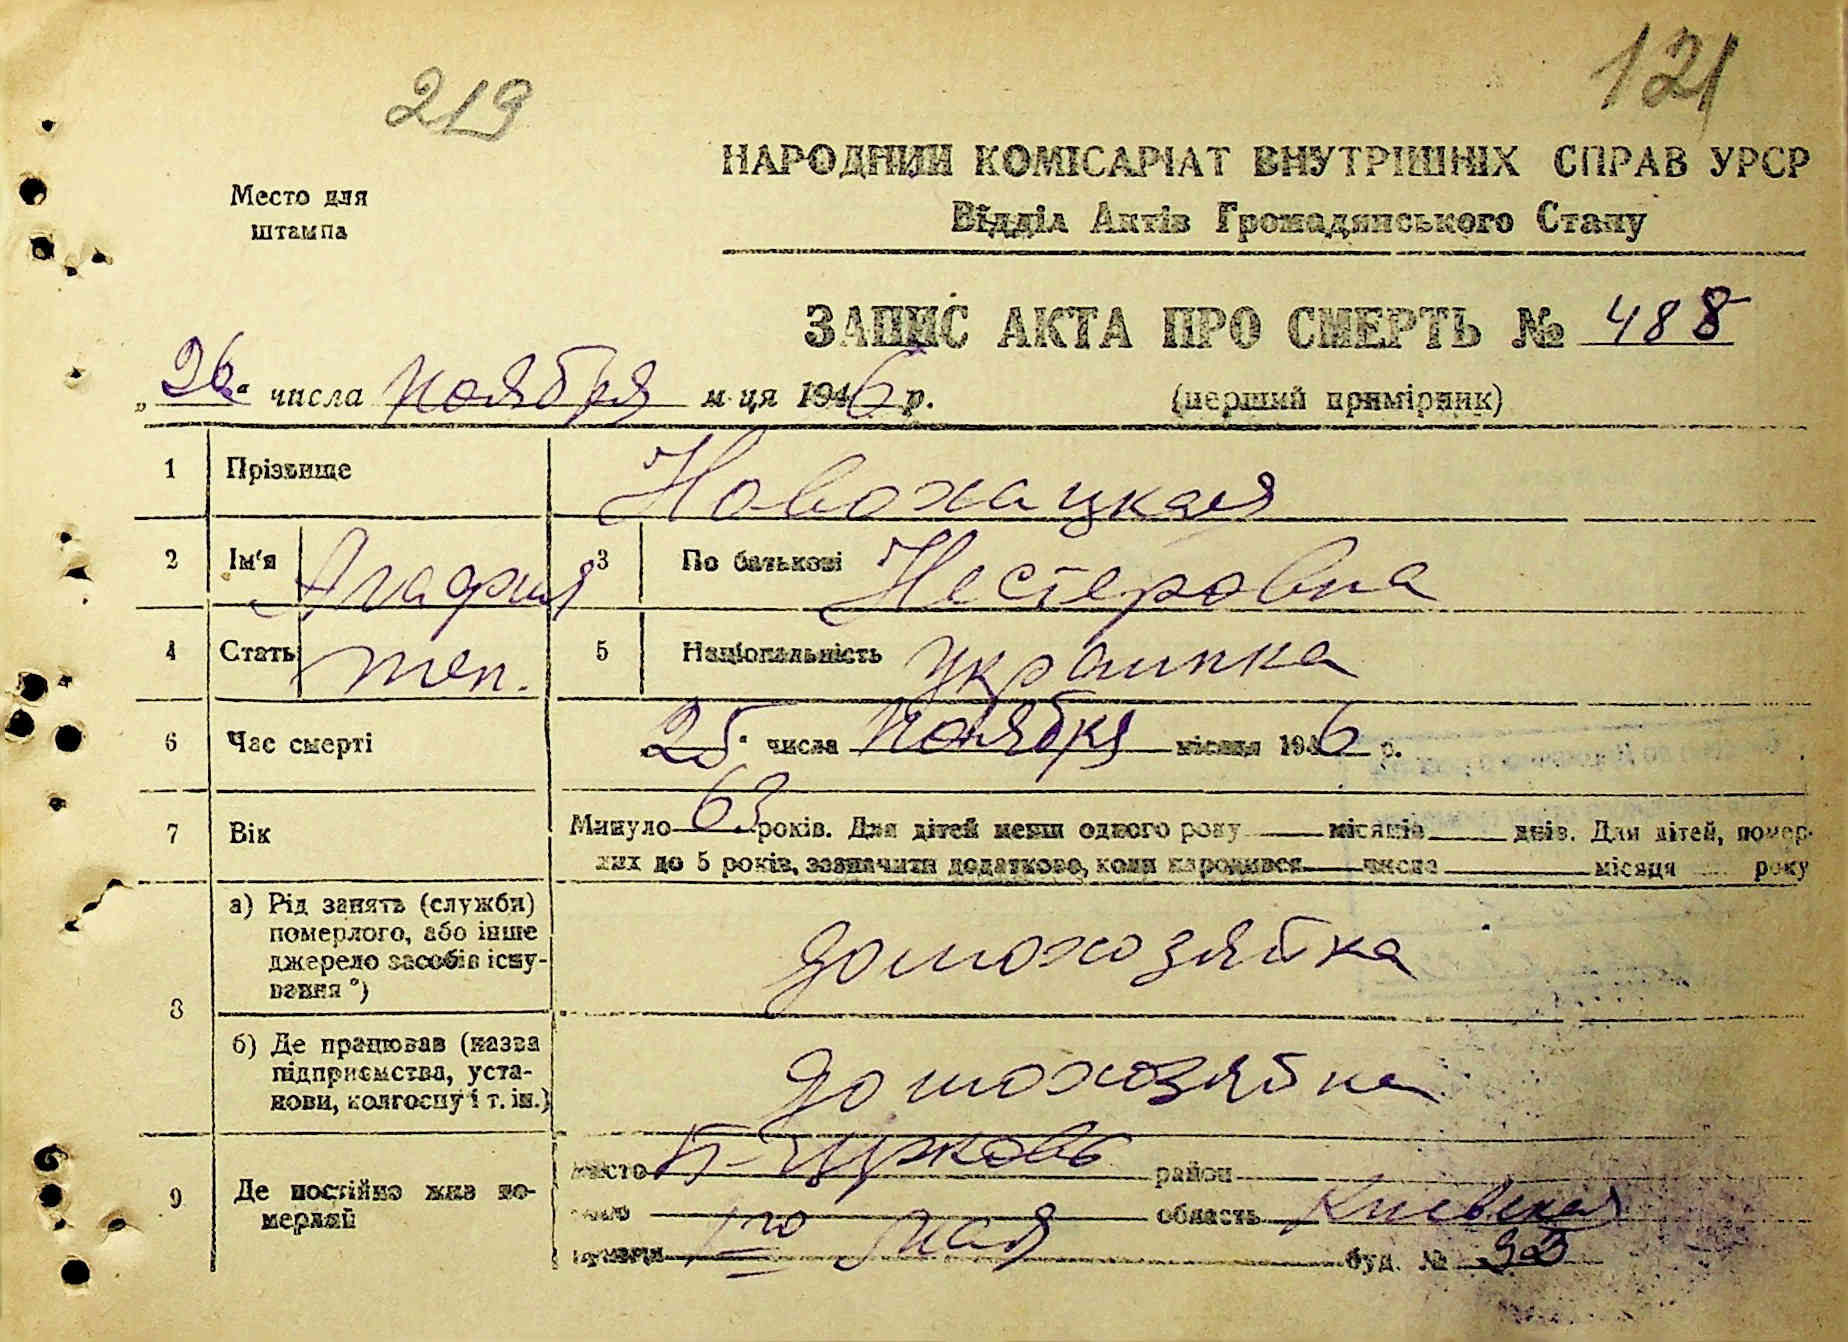 219
121
Место для
штампа
НАРОДНИЙ КОМІСАРІАТ ВНУТРІШНІХ СПРАВ УРСР
Відділ Актів Громадянського Стану
ЗАПИС АКТА ПРО СМЕРТЬ № 488
„26“ числа ноября м-ця 1946 р. (перший примірник)
1 Прізвище Новохацкая
2 Ім'я Агафия 3 По батькові Нестеровна
4 Стать жен. 5 Національність украинка
6 Час смерті 25 числа ноября місяця 1946 р.
7 Вік Минуло 63 років. Для дітей менш одного року — місяців — днів. Для дітей, помер-
лих до 5 років, зазначити додатково, коли народився — числа — місяця — року
8 а) Рід занять (служби)
померлого, або інше
джерело засобів існу-
вання *)
домохозяйка
б) Де працював (назва
підприємства, уста-
нови, колгоспу і т. ін.)
домохозяйка
9 Де постійно жив по-
мерлий
місто Б-Церковь район
село область Киевская
1го мая буд. №